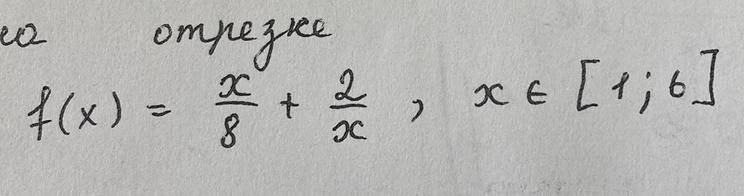 на отрезке
f(x) = x/8 + 2/x , x ∈ [1; 6]